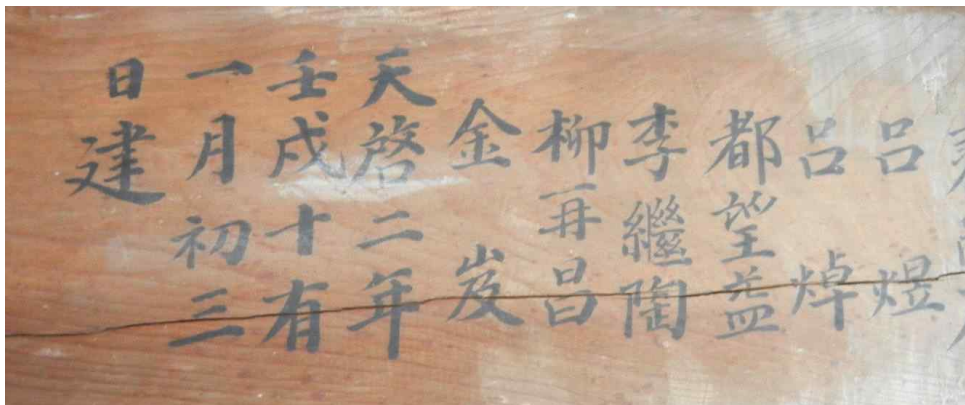 呂煜
呂焯
都望益
李繼陶
柳再昌
金岌
天啓二年
壬戌十有
一月初三
日建